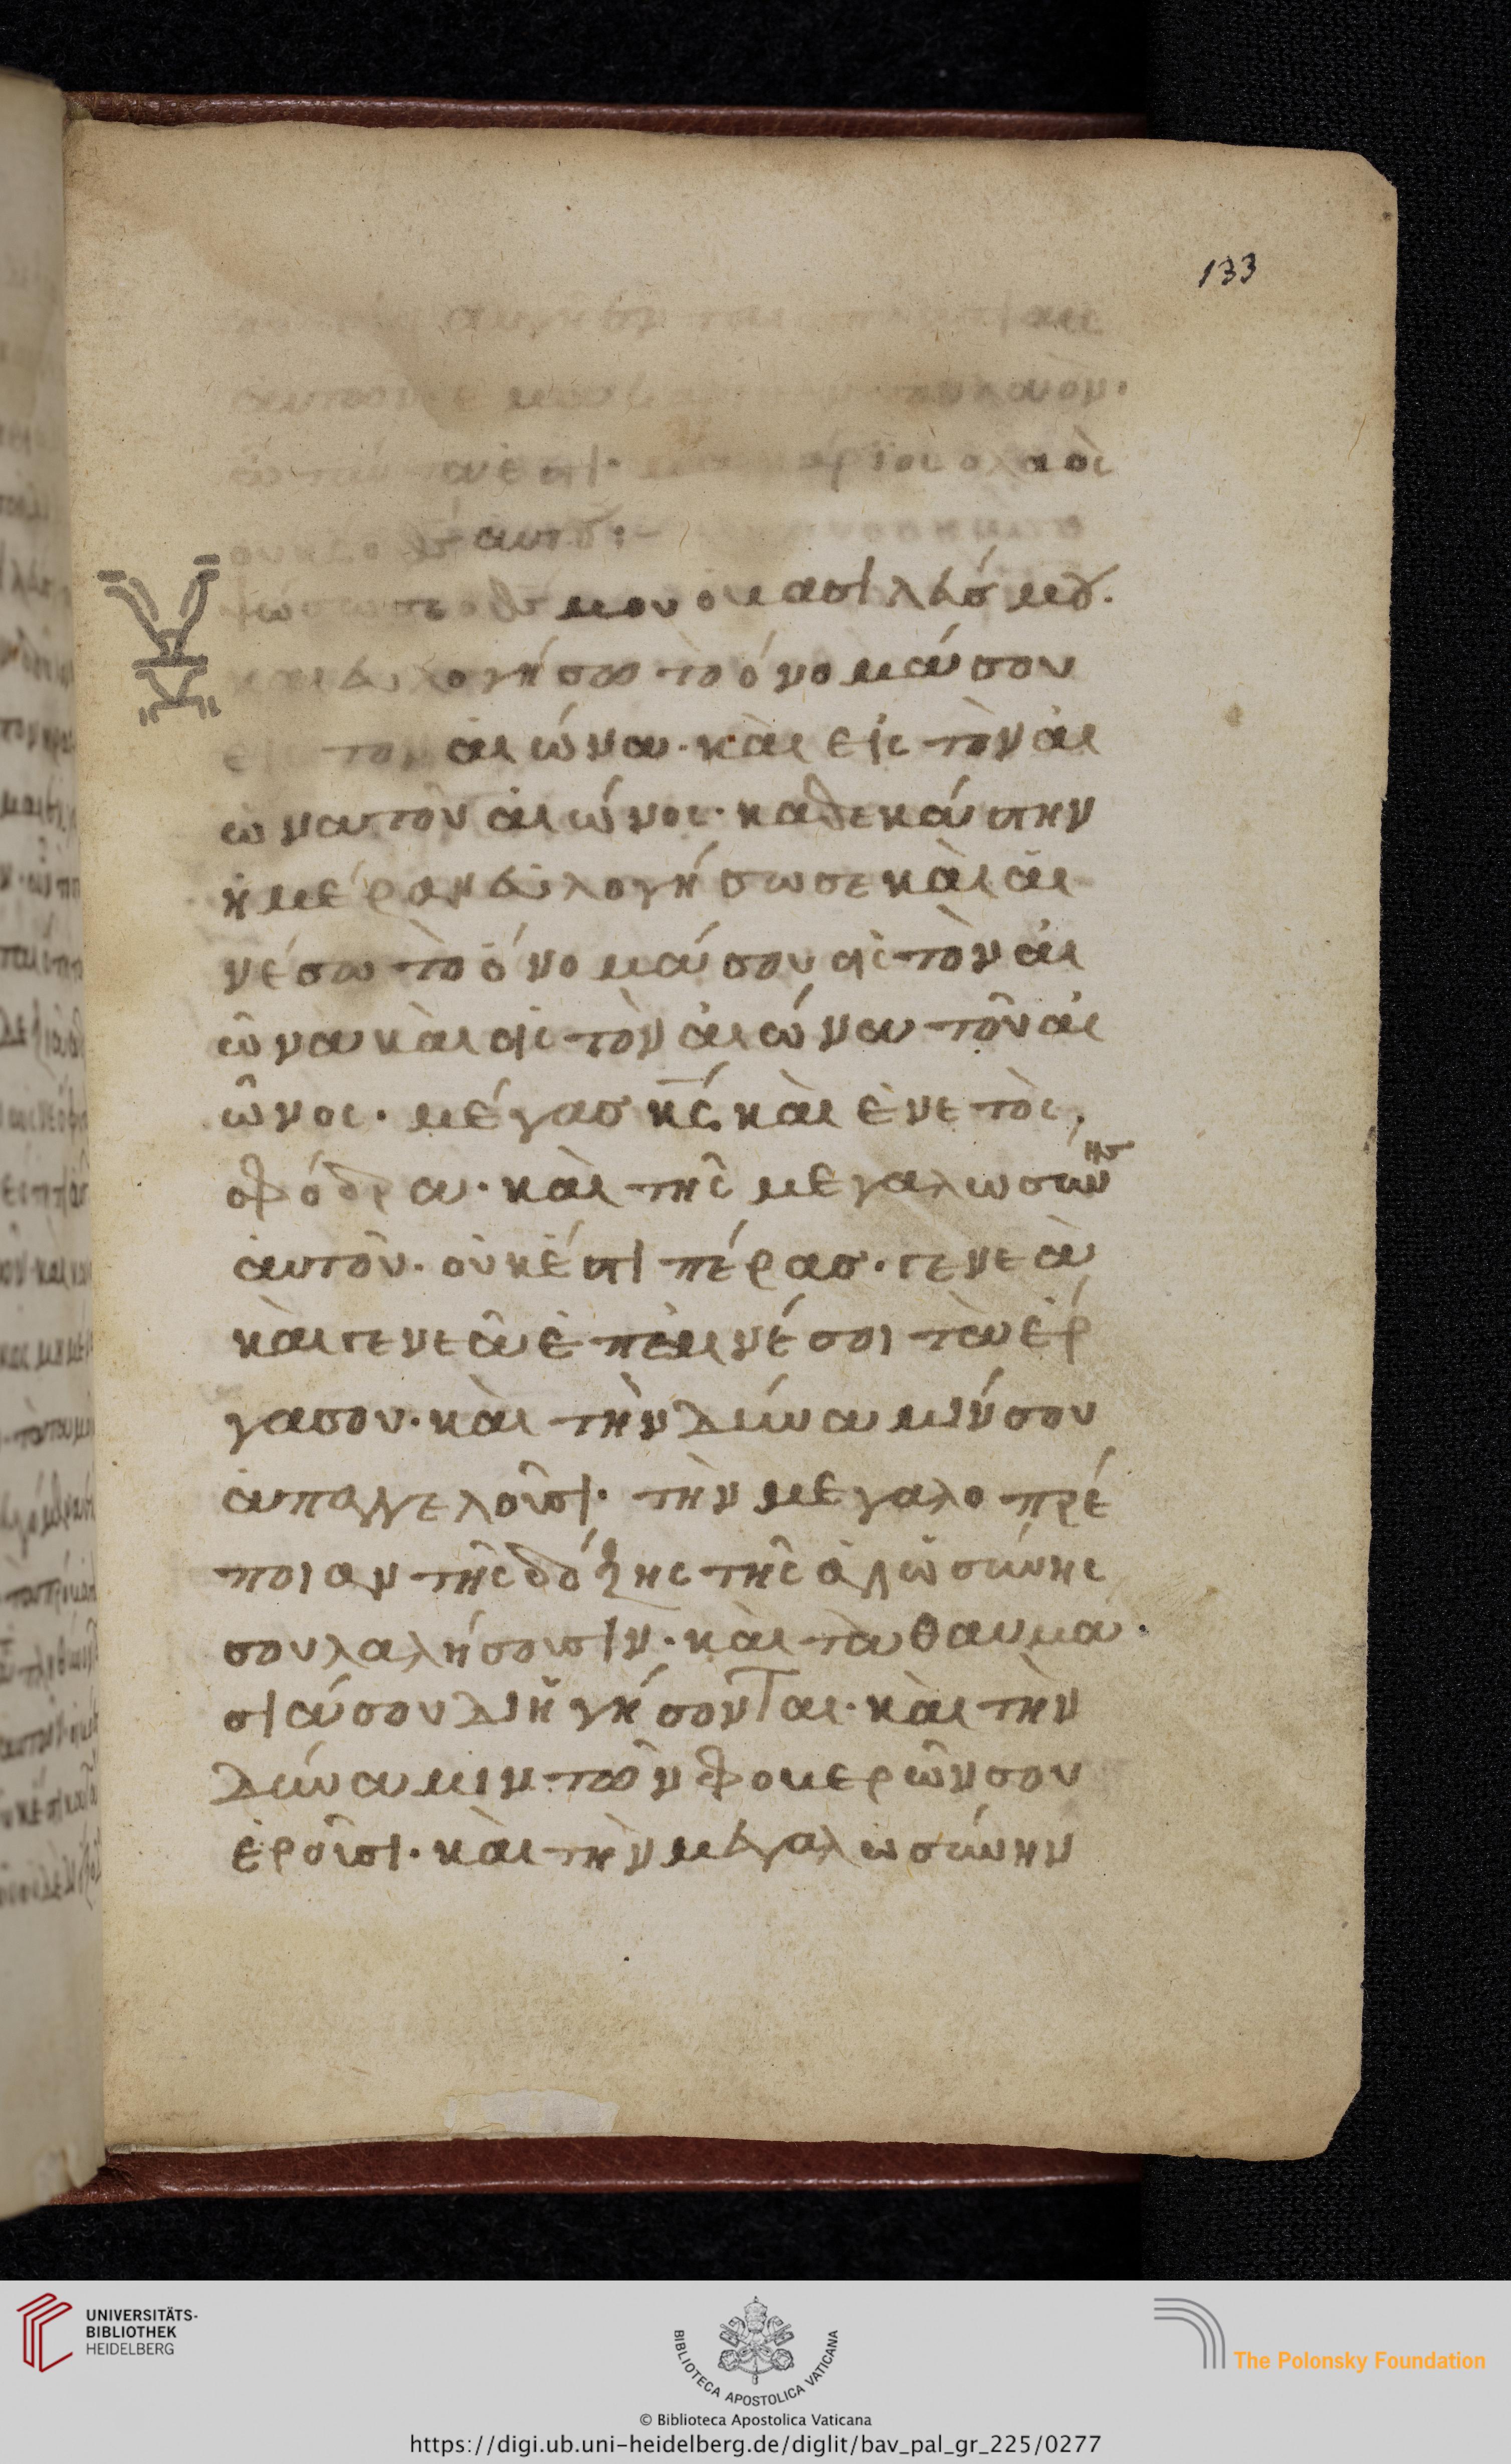 133
κραυγὴ ἐν ταῖς πλατείαις
αὐτῶν· ἐμακάρισαν τὸν λαὸν·
ὧ ταῦτα ἐστι· μακάριος ὁ λαὸς
οὗ κς ὁ θσ αὐτοῦ:-
Ὑψώσω σε ὁ θσ μου ὁ βασιλεύσ μου.
καὶ εὐλογήσω τὸ όνομά σου
εἰς τὸν ἀιώνα· κὰι εἰς τὸν ἀι
ῶνα τοῦ ἀιώνος· καθεκάστην
ἡμέραν εὐλογήσω σε κὰι ἀι
νέσω τὸ ὄνομά σου εἰς τὸν ἀι
ῶνα κὰι εἰς τὸν ἀιώνα τοῦ ἀι
ῶνος· μέγασ κς κὰι ἐνετὸς,
σφόδρα· κὰι τῆς μεγαλωσύνησ
ἀυτοῦ· οὐκ έστι πέρασ· γενεὰ
κὰι γενεᾶ ἐπαινέσει τὰ έρ
γα σου· κὰι τὴν δύναμίν σου
ἀπαγγελοῦσι· τὴν μεγαλοπρέ
πειαν τῆς δόξης τῆς ἁγιωσύνης
σου λαλήσουσιν· κὰι τὰ θαυμά·
σιά σου διηγήσονται· κὰι τὴν
δύναμιν τῶν φοβερῶν σου
ἐροῦσι· κὰι τὴν μεγαλωσύνην
UNIVERSITÄTS-
BIBLIOTHEK
HEIDELBERG
BIBLIOTECA APOSTOLICA VATICANA
The Polonsky Foundation
© Biblioteca Apostolica Vaticana
https://digi.ub.uni-heidelberg.de/diglit/bav_pal_gr_225/0277